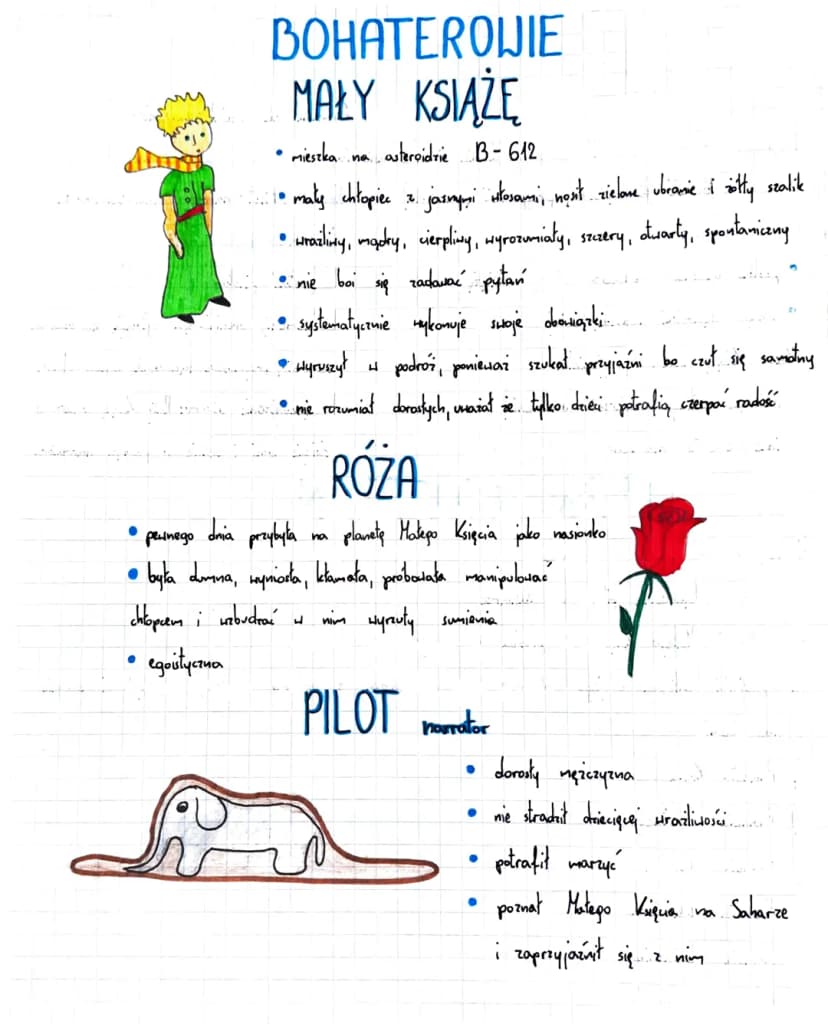 BOHATEROWIE
MAŁY KSIĄŻĘ
• mieszka na asteroidzie B-612
• mały chłopiec z jasnymi włosami, nosił zielone ubranie i żółty szalik
• wrażliwy, mądry, cierpliwy, wyrozumiały, szczery, otwarty, spontaniczny
• nie boi się zadawać pytań
• systematycznie wykonuje swoje obowiązki
• wyruszył w podróż, ponieważ szukał przyjaźni bo czuł się samotny
• nie rozumiał dorosłych, uważał że tylko dzieci potrafią czerpać radość
RÓŻA
• pewnego dnia przybyła na planetę Małego Księcia jako nasionko
• była dumna, wyniosła, kłamała, próbowała manipulować
chłopcem i wzbudzać w nim wyrzuty sumienia
• egoistyczna
PILOT narrator
• dorosły mężczyzna
• nie stradził dziecięcej wrażliwości
• potrafił marzyć
• poznał Małego Księcia na Saharze
i zaprzyjaźnił się z nim